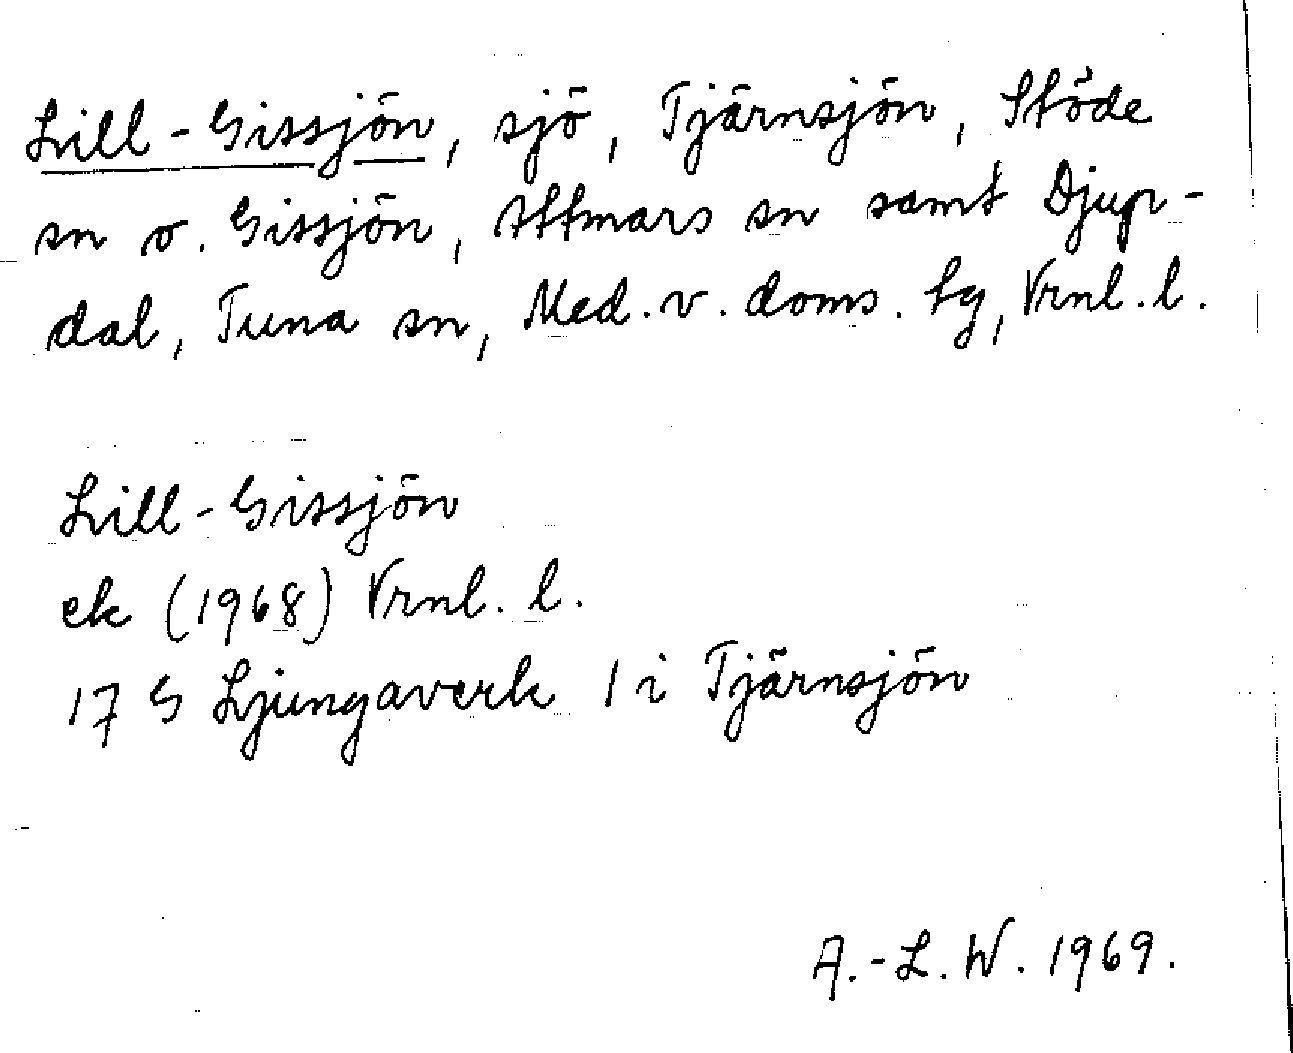 Lill-Gissjön, sjö, Tjärnsjön, Stöde
sn o. Gissjön, Attmars sn samt Djup-
dal, Tuna sn, Med. v. doms. tg, Vrnl. l.
Lill-Gissjön
ek (1968) Vrnl. l.
17 G Ljungaverk 1 i Tjärnsjön
A.-L. W. 1969.